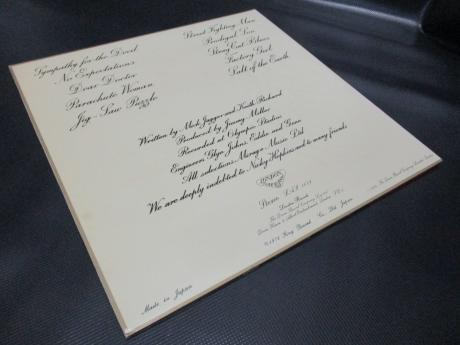 Sympathy for the Devil
No Expectations
Dear Doctor
Parachute Woman
Jig-Saw Puzzle
Street Fighting Man
Prodigal Son
Stray Cat Blues
Factory Girl
Salt of the Earth
Written by Mick Jagger and Keith Richard
Produced by Jimmy Miller
Recorded at Olympic Studios
Engineers Glyn Johns, Eddie and Gene
All selections: Mirage Music Ltd
We are deeply indebted to Nicky Hopkins and to many friends
LONDON
Stereo
London Records
King Record Co. Ltd. Japan
Made in Japan